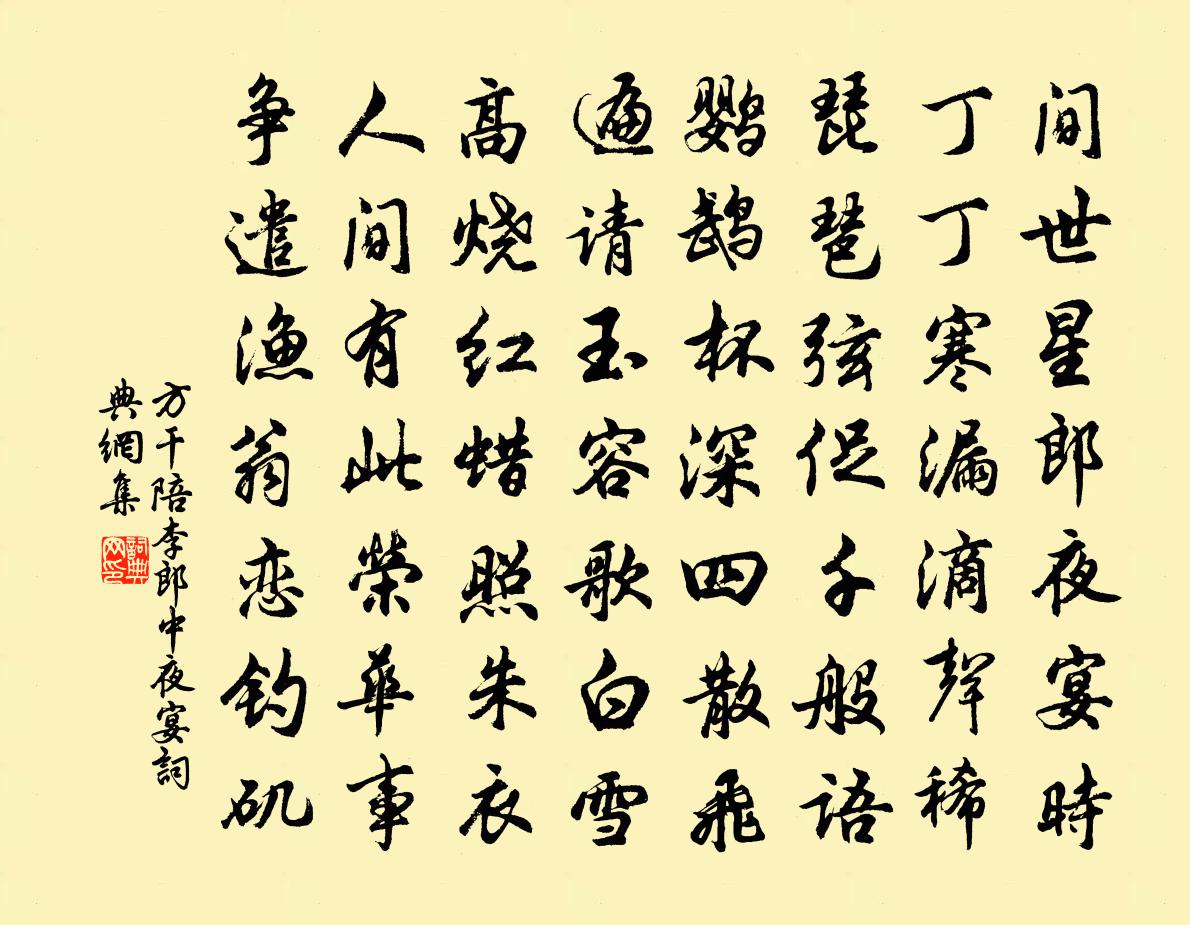 间世星郎夜宴時
丁丁寒漏滴聲稀
琵琶弦促千般语
鹦鹉杯深四散飛
遍请玉容歌白雪
高烧红蜡照朱衣
人间有此榮華事
争遣渔翁恋钓矶
方干陪李郎中夜宴詞
典網集
詞典
网